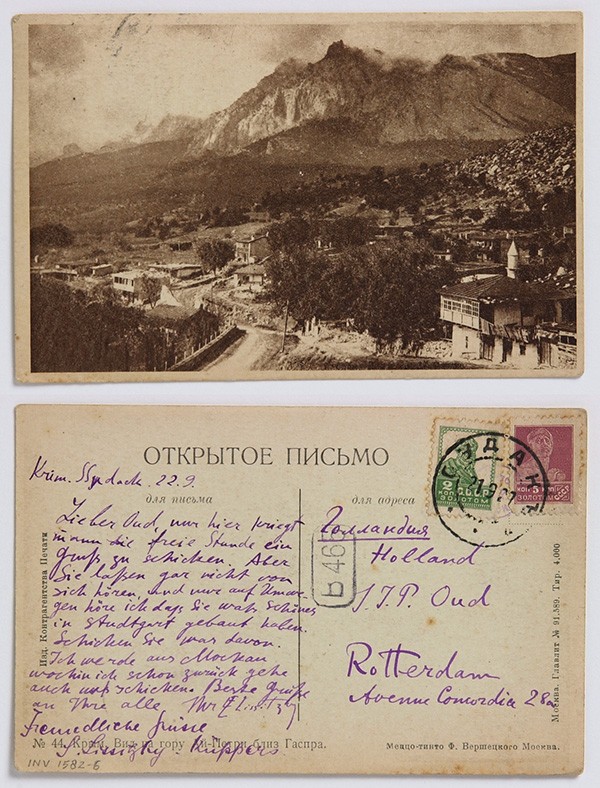 ОТКРЫТОЕ ПИСЬМО
для письма
для адреса
Krim. 22.9.
Lieber Oud, nur hier kriegt
mann die freie Stunde ein
Gruß zu schicken. Aber
Sie laßen gar nicht von
sich hören, und nur auf Umwe-
gen höre ich daß Sie was schönes
in Stuttgart gebaut haben.
Schicken Sie was davon.
Ich werde aus Moskau
wohin ich schon zurück gehe
auch was schicken. Beste Grüße
an Ihre alle. Ihr El Lissitzky
Freundliche Grüsse
S. Lissitzky-Küppers
Голландия
Holland
J.J.P. Oud
Rotterdam
Avenue Concordia 28a
2
КОП
ЗОЛОТОМ
КОП 5
ЗОЛОТОМ
СССР
СУДАК
Р 46
Изд. Контрагентства Печати
Москва. Главлит № 91.589. Тир. 4.000
№ 44. Крым. Вид на гору Ай-Петри близ Гаспра.
Меццо-тинто Ф. Вершецкого Москва.
INV 1582-6